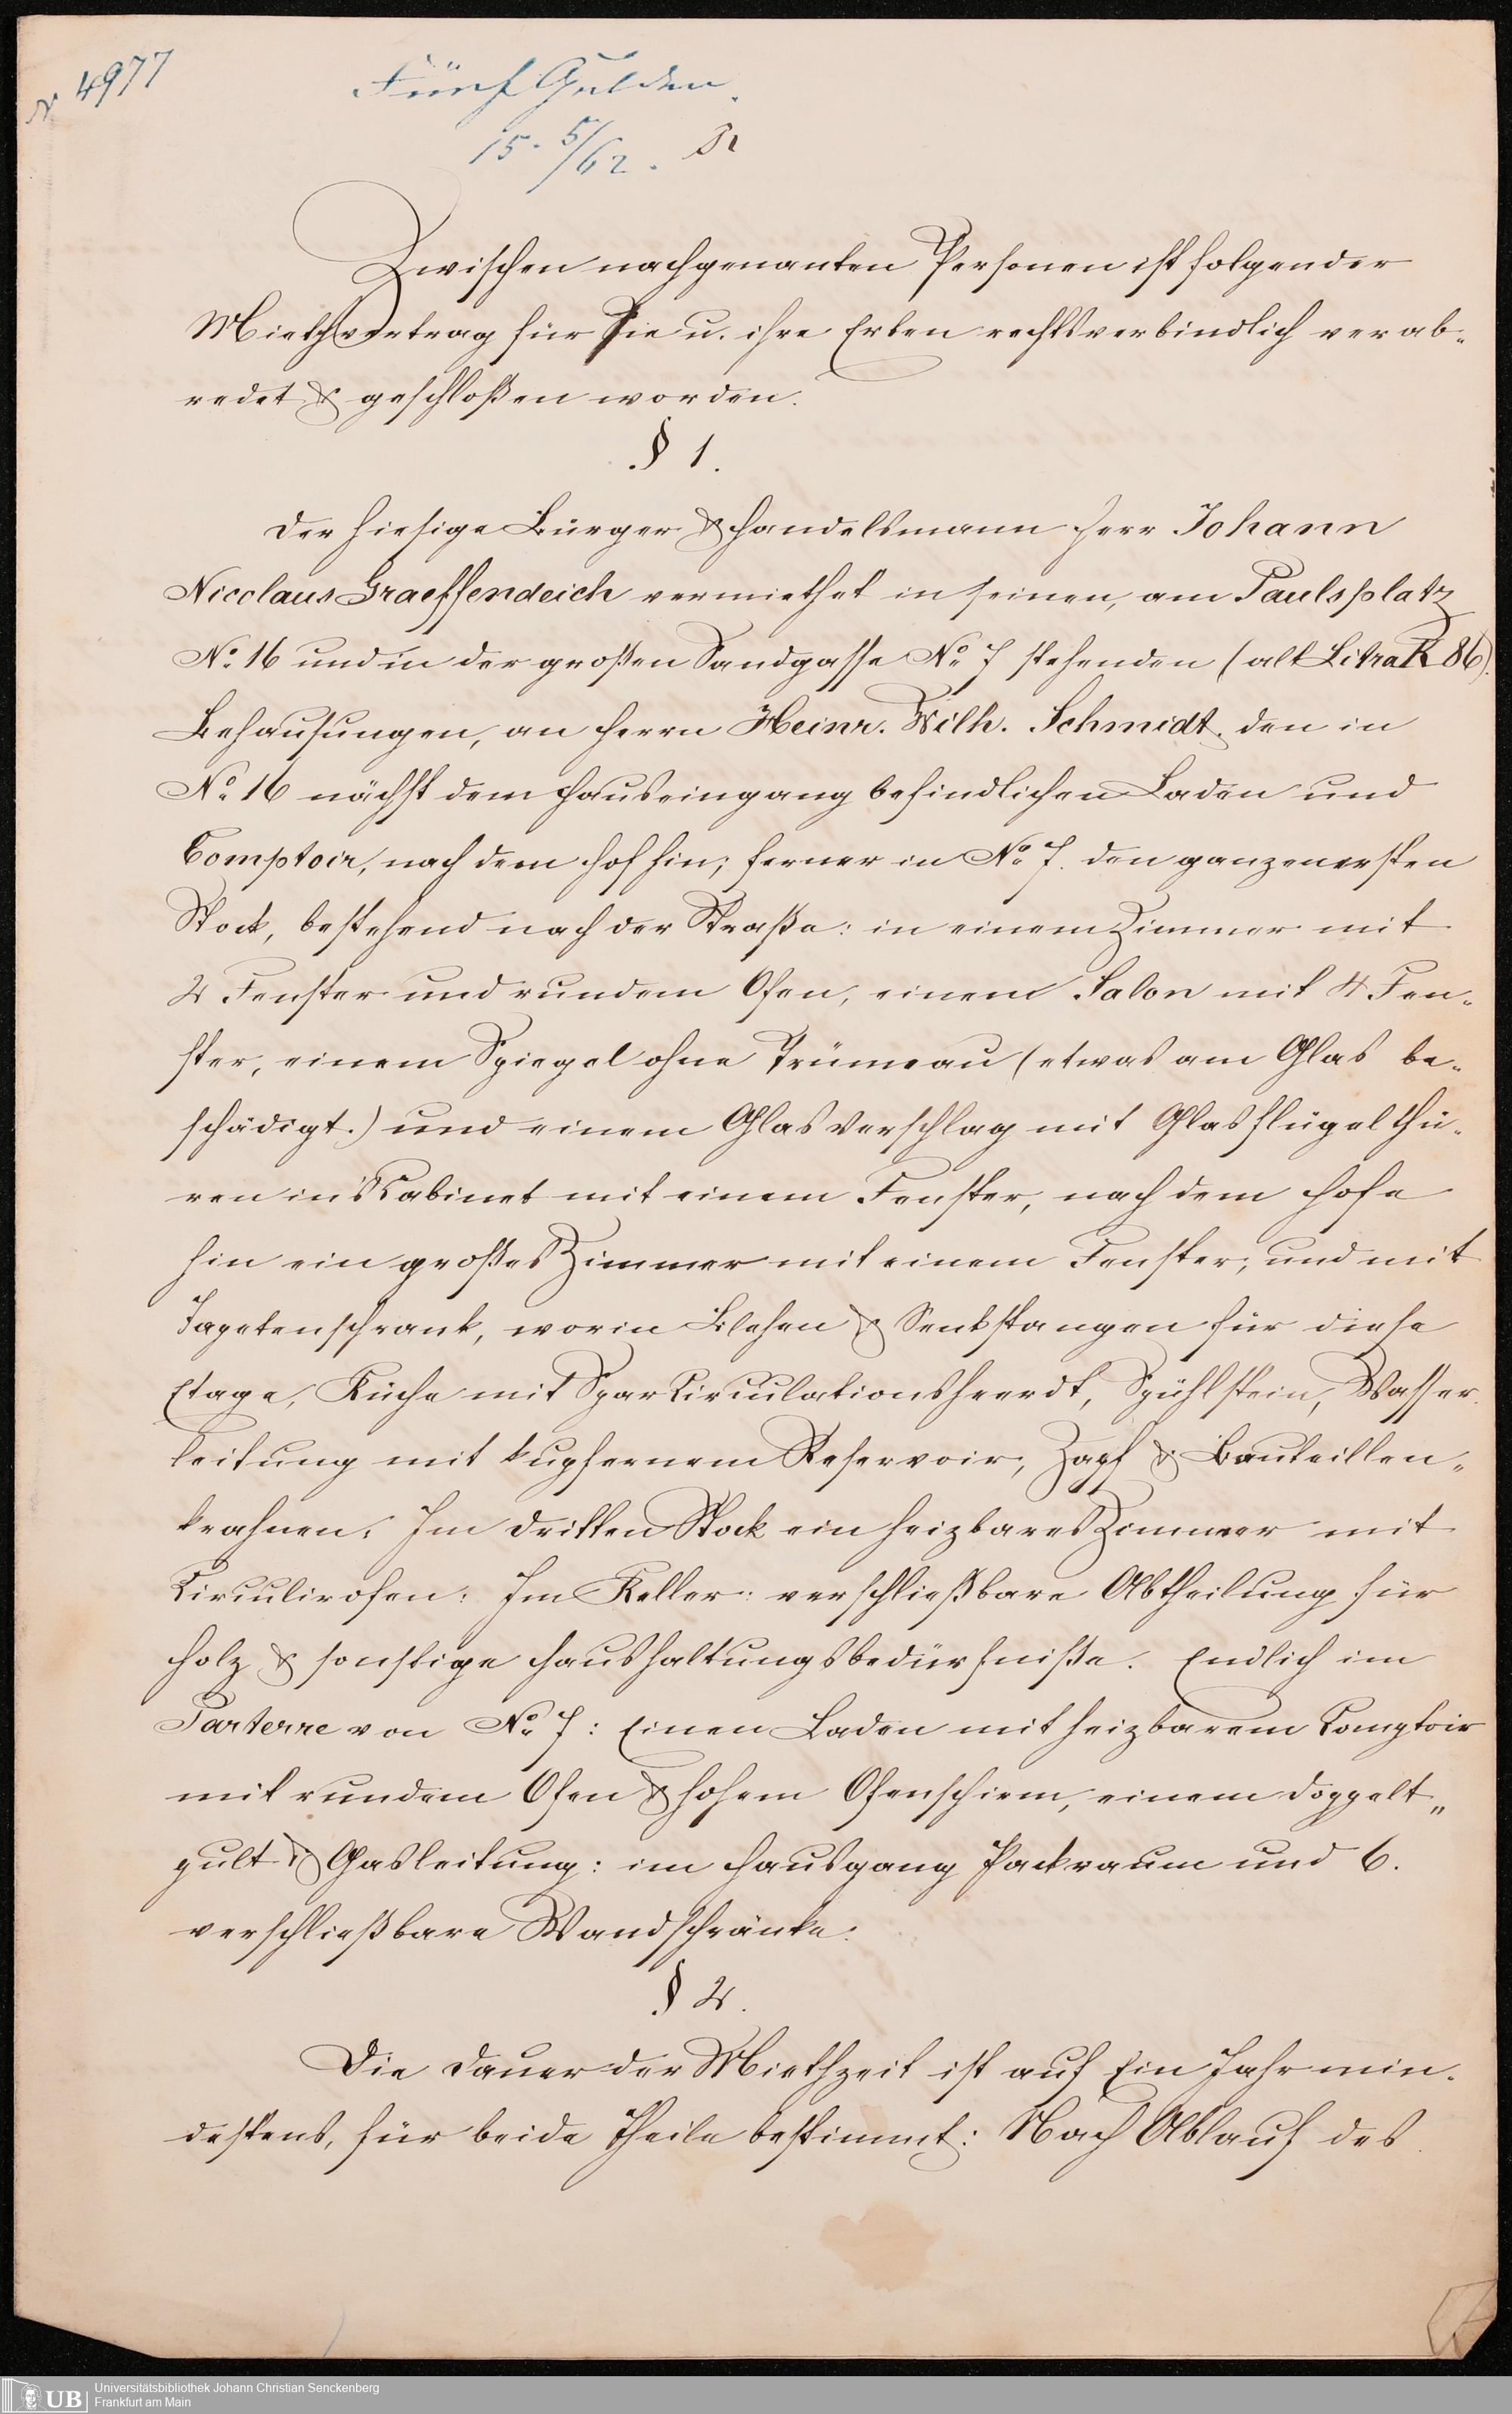 N 4977
Fünf Gulden.
15. 5/62.
Zwischen nachgenanten Personen ist folgender
Miethvertrag für Sie u. ihre Erben rechtsverbindlich verab-
redet & geschloßen worden.
§ 1.
Der hiesige Bürger & Handelsmann Herr Johann
Nicolaus Graeffendeich vermiethet in seinen, am Paulsplatz
No. 16 und in der großen Sandgasse No. 7 stehenden (alt Litra K 86).
Behausungen, an Herrn Heinr. Wilh. Schmidt, den in
No. 16 nächst dem Hauseingang befindlichen Laden und
Comptoir, nach dem Hof hin; ferner in No. 7. den ganzen ersten
Stock, bestehend nach der Straße: in einem Zimmer mit
2 Fenster und rundem Ofen, einem Salon mit 4 Fen-
ster, einem Spiegel ohne Trümeau (etwas am Glas be-
schädigt.) und einem Glasverschlag mit Glasflügelthü-
ren in's Kabinet mit einem Fenster, nach dem Hofe
hin ein großes Zimmer mit einem Fenster, und mit
Tapetenschrank, worin & Senkstangen für diese
Etage, Küche mit Sparcirculationsheerdt, Spühlstein, Wasser-
leitung mit kupfernem Reservoir, Zapf & Bouteillen-
krahnen. Im dritten Stock ein heizbares Zimmer mit
Circulirofen: Im Keller: verschließbare Abtheilung für
Holz & sonstige Haushaltungsbedürfniße. Endlich im
Parterre von No. 7: Einen Laden mit heizbarem Comptoir
mit rundem Ofen & hohem Ofenschirm, einem Doppelt-
pult & Gasleitung: im Hausgang Packraum und 6.
verschließbare Wandschränke.
§ 2.
Die Dauer der Miethzeit ist auf Ein Jahr min-
destens, für beide Theile bestimmt: Nach Ablauf des
UB Universitätsbibliothek Johann Christian Senckenberg
Frankfurt am Main